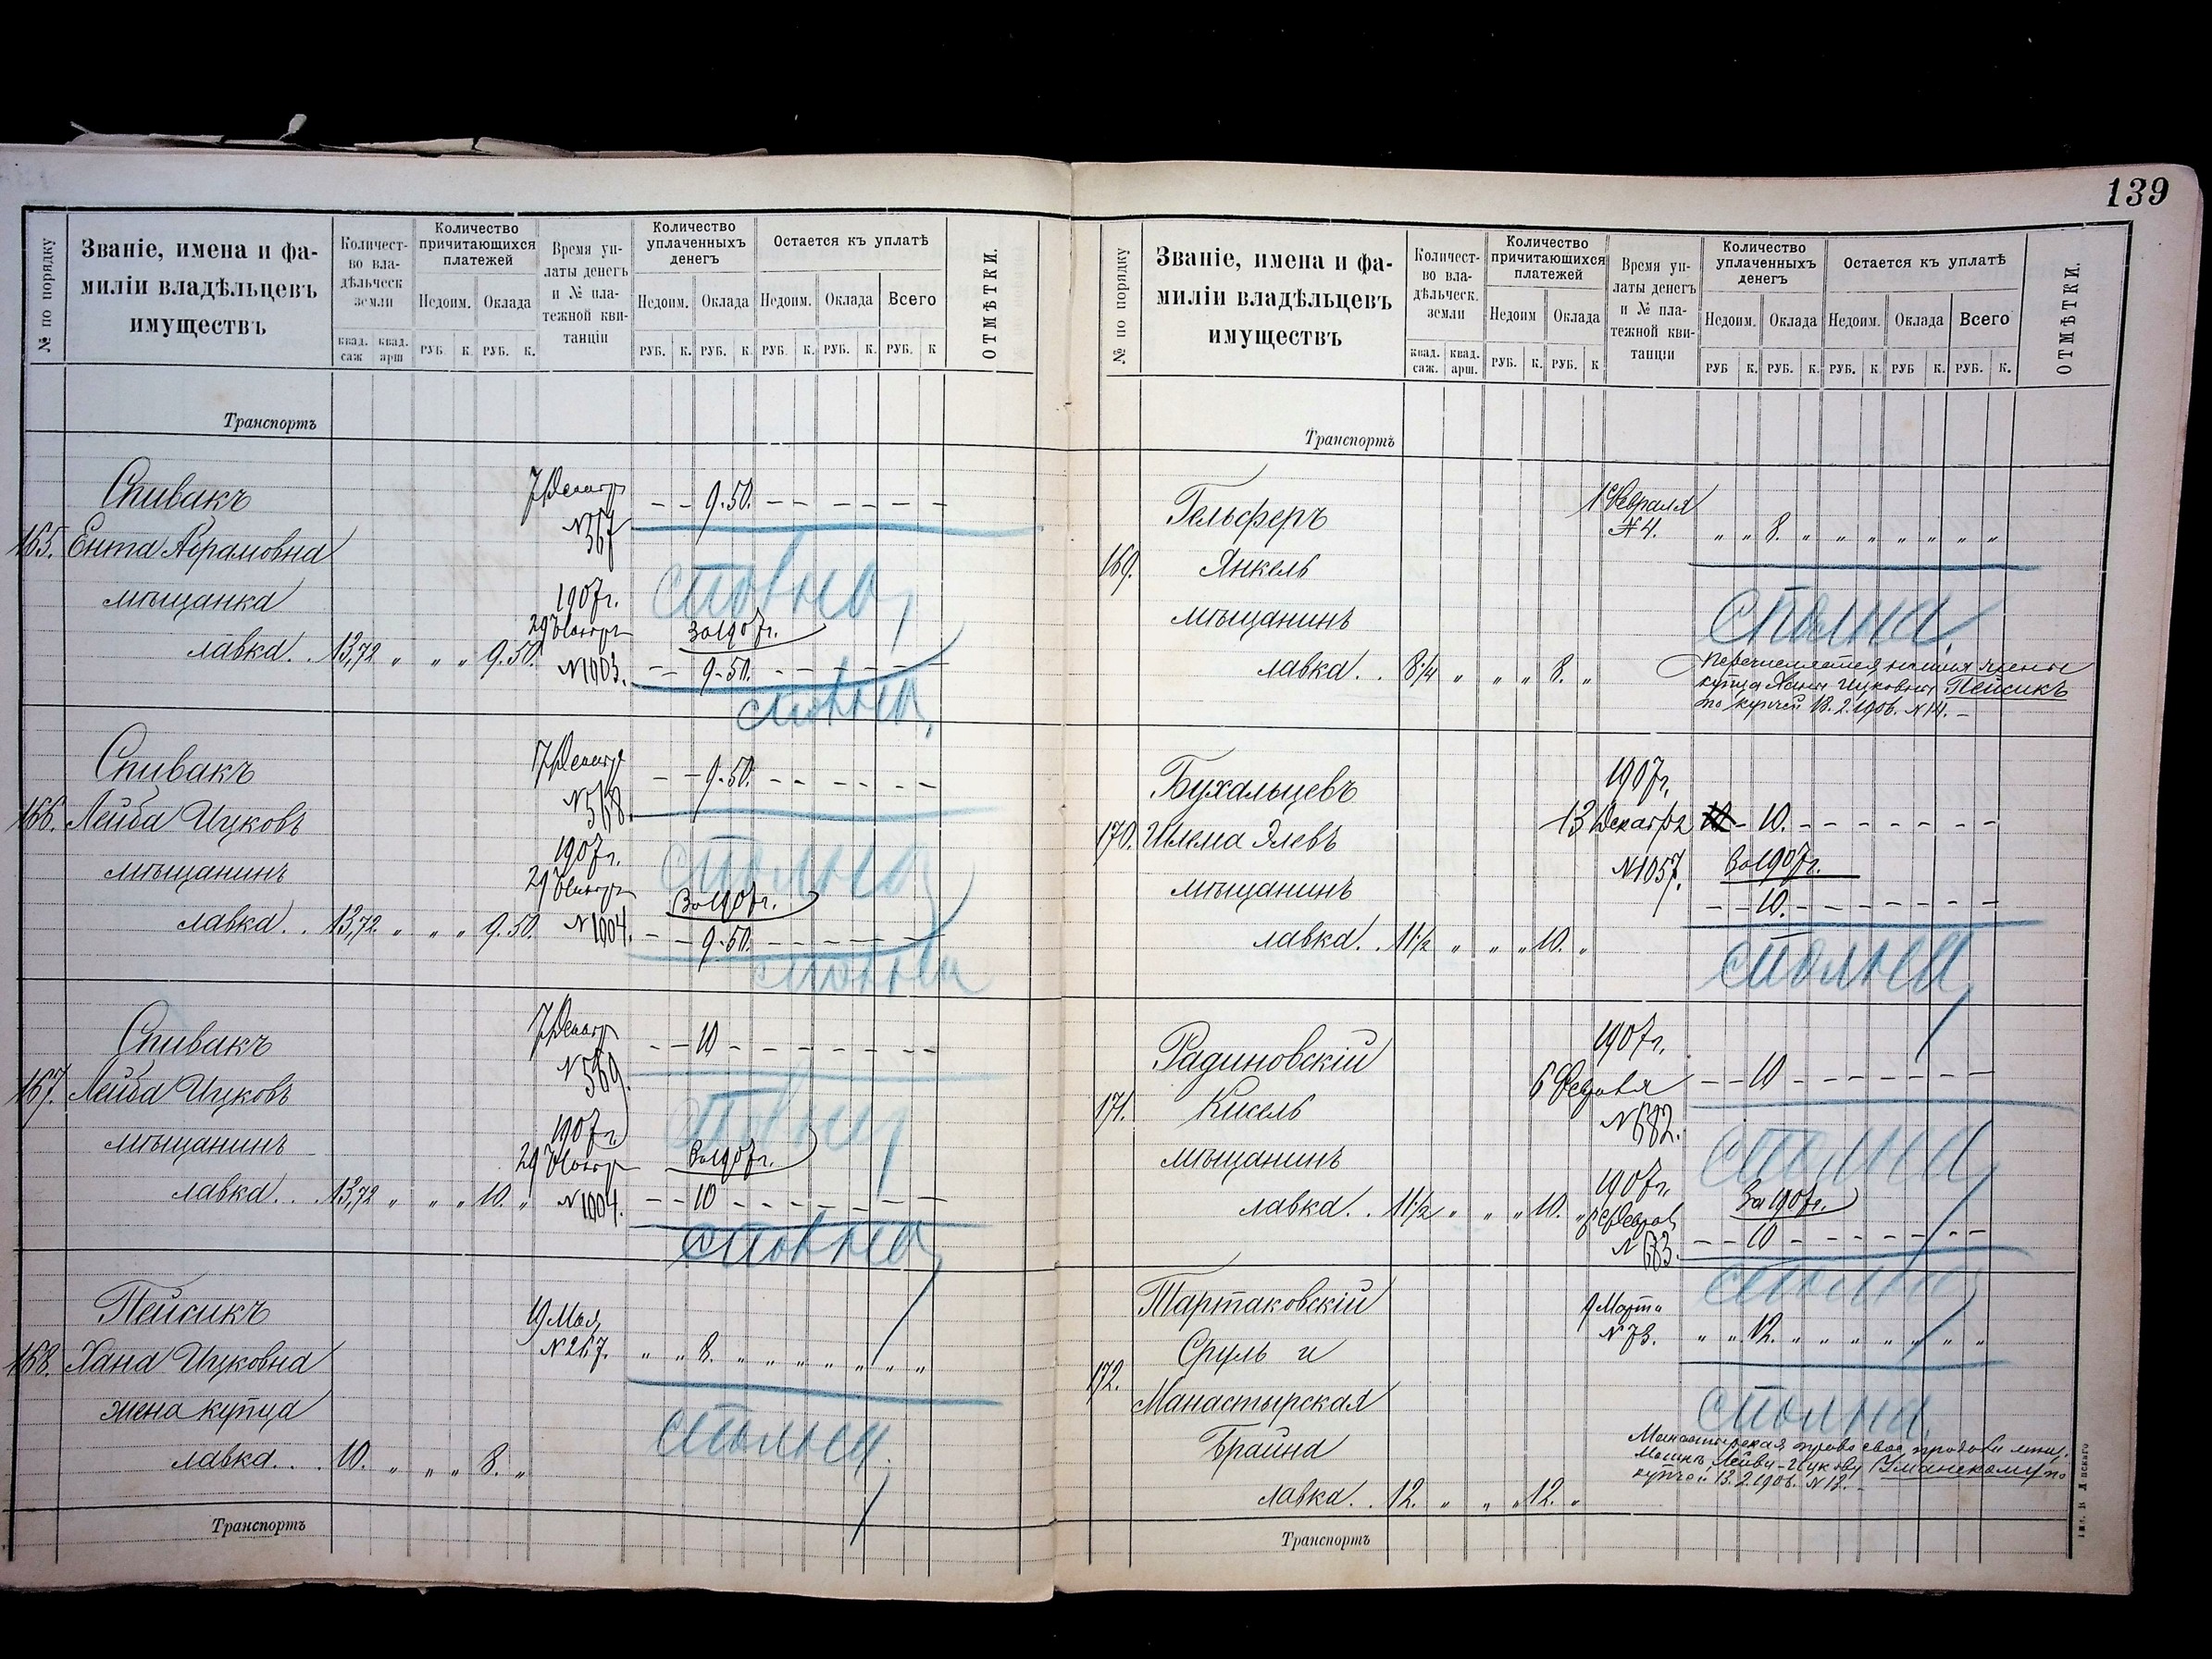 139
№ по порядку
Званіе, имена и фа-
миліи владѣльцевъ
имуществъ
Количест-
во вла-
дѣльческ
земли
квад. саж
квад. арш
Количество
причитающихся
платежей
Недоим.
Оклада
РУБ. К. РУБ. К.
Время уп-
латы денегъ
и № пла-
тежной кви-
танціи
Количество
уплаченныхъ
денегъ
Недоим. Оклада
РУБ. К. РУБ. К.
Остается къ уплатѣ
Недоим. Оклада Всего
РУБ. К. РУБ. К. РУБ. К
ОТМѢТКИ.
Транспортъ
Спивакъ
165. Ента Абрамовна
мѣщанка
лавка. . 13,72 „ „ „ 9.50.
7 Декабр
№ 567
— — 9.50. — — — — — —
сполна,
1907г.
29 Ноябр
№ 1003.
За 1907г.
— — 9.50. — — — — — —
сполна,
Спивакъ
166. Лейба Ицковъ
мѣщанинъ
лавка. . 13,72 „ „ „ 9.50.
7 Декабр
№ 568.
— — 9.50. — — — — — —
сполна
1907г.
29 Ноябр
№ 1004.
За 1907г.
— — 9.50. — — — — — —
сполна
Спивакъ
167. Лейба Ицковъ
мѣщанинъ
лавка. . . 13,72 „ „ „ 10. „
7 Декабр
№ 569.
— — 10 — — — — — — —
сполна,
1907г.
29 Ноябр
№ 1004.
За 1907г.
— — 10 — — — — — — —
сполна,
Пейсикъ
168. Хана Ицковна
жена купца
лавка. . . 10. „ „ „ 8. „
19 Мая,
№ 267.
„ „ 8. „ „ „ „ „ „ „
сполна,
Транспортъ
№ по порядку
Званіе, имена и фа-
миліи владѣльцевъ
имуществъ
Количест-
во вла-
дѣльческ.
земли
квад. саж.
квад. арш.
Количество
причитающихся
платежей
Недоим Оклада
РУБ. К. РУБ. К
Время уп-
латы денегъ
и № пла-
тежной кви-
танціи
Количество
уплаченныхъ
денегъ
Недоим. Оклада
РУБ К. РУБ. К.
Остается къ уплатѣ
Недоим. Оклада Всего
РУБ. К. РУБ К. РУБ. К.
ОТМѢТКИ.
Транспортъ
Гельферъ
169. Янкель
мѣщанинъ
лавка. . 8¼ „ „ „ 8. „
1 Февраля
№ 4.
„ „ 8. „ „ „ „ „ „ „
сполна,
купца Ханы Ицковны Пейсикъ
по купчей 13.2.1906. №14. —
Бухальцевъ
170. Шлема Элевъ
мѣщанинъ
лавка. . 11½ „ „ „ 10. „
1907г.
13 Декабря
№ 1057.
— 10. — — — — — — —
За 1907г.
— — 10. — — — — — — —
сполна,
Радиновскій
171. Кисель
мѣщанинъ
лавка. . 11½ „ „ „ 10. „
1907г.
6 Февраля
№ 682.
— — 10 — — — — — — —
сполна,
1907г.
6 Феврал
№ 683.
За 1907г.
— — 10 — — — — — — —
сполна,
Тартаковскій
Сруль и
172.
Манастырская
Брайна
лавка. . 12. „ „ „ 12. „
9 Марта
№ 73.
„ „ 12. „ „ „ „ „ „ „
сполна,
Манастырская право свое продала мѣщ.
Лейви-Ицкову Уманскому по
купчей 13.2.1906. №13. —
Транспортъ